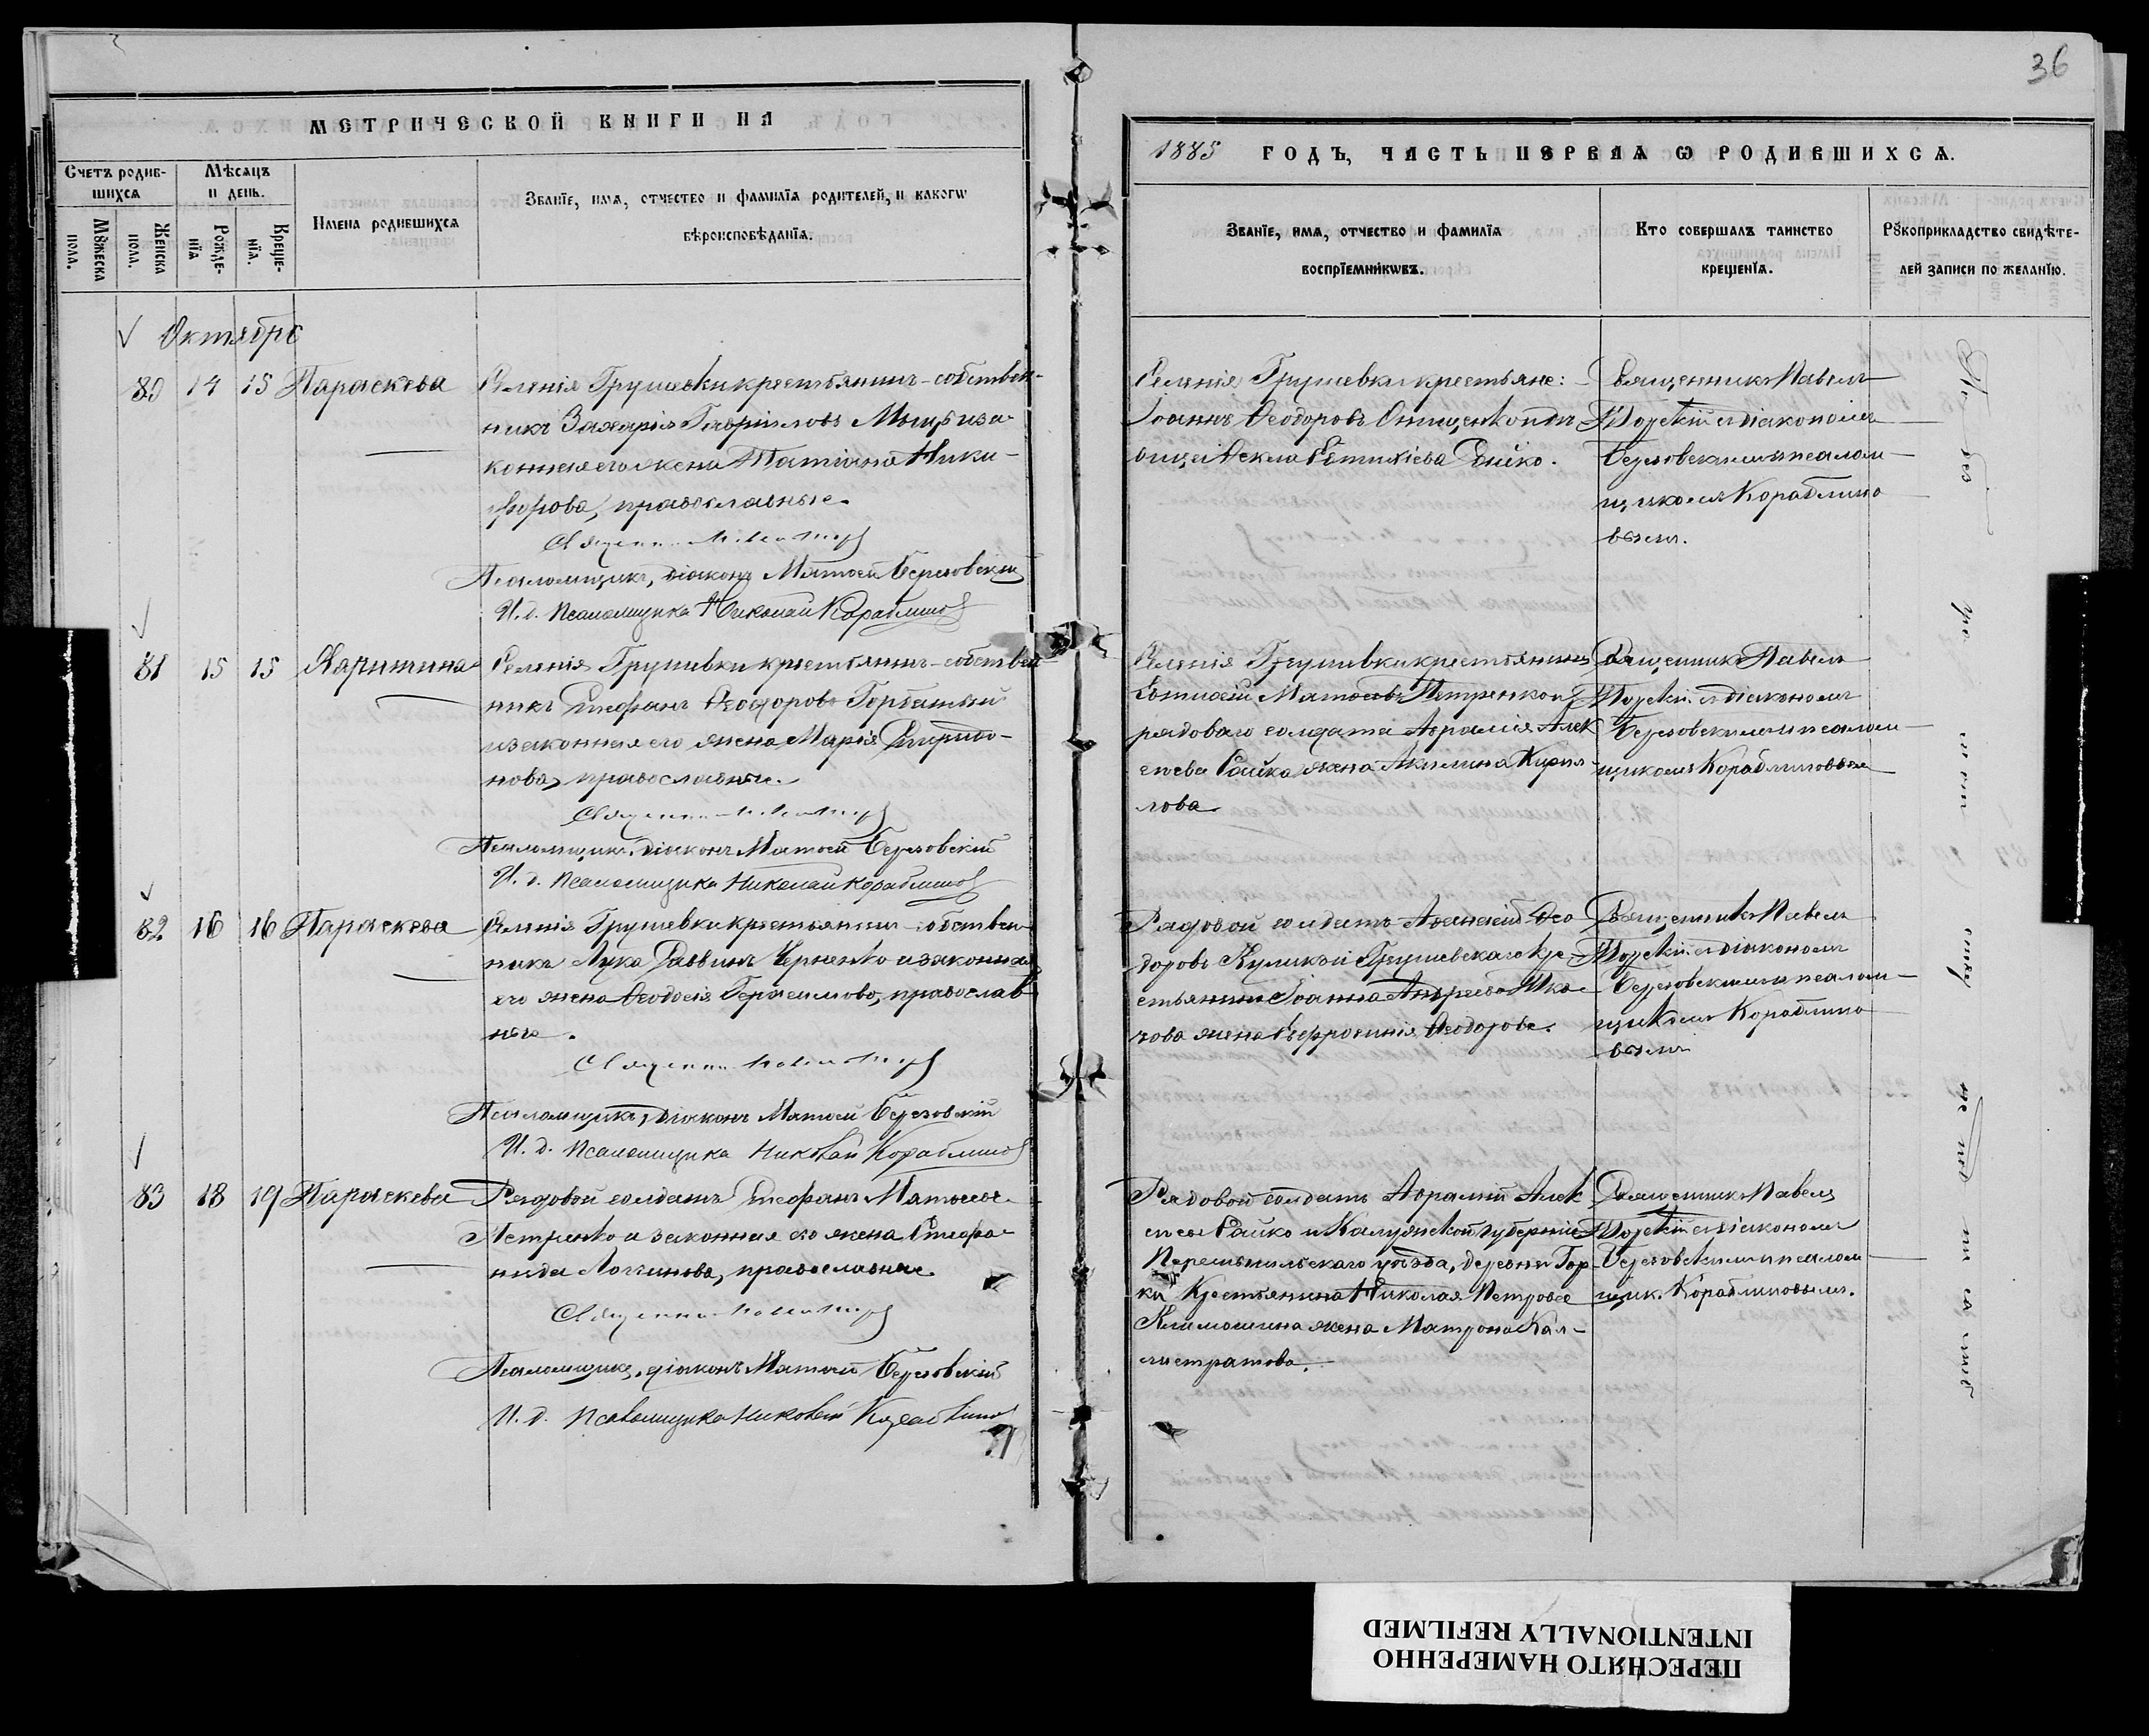 36
МЕТРИЧЕСКОЙ КНИГИ НА
1885 ГОДЪ, ЧАСТЬ ПЕРВАЯ Ѡ РОДИВШИХСѦ.
Счетъ родив-
шихсѧ
Мѣсѧцъ
и день.
Мꙋжеска
пола.
Женска
пола.
Рожде-
нїѧ
Креще-
нїѧ.
Имена родившихсѧ
Званїе, имѧ, отчество и фамилїѧ родителей, и какогѡ
вѣроисповѣданїѧ.
Званїе, имѧ, отчество и фамилїѧ
воспрїемникѡвъ.
Кто совершалъ таинство
крещенїѧ.
Рꙋкоприкладство свидѣте-
лей записи по желанїю.
Октября
80 14 15 Параскева
Селенія Грушевки крестьянинъ-собствен-
никъ Захарія Гавріиловъ и за-
конная его жена Татіана Ники-
форова, православные.
Псаломщикъ, діаконъ Матѳей Березовскій
И. д. псаломщика Николай Кораблиновъ
Селенія Грушевки крестьяне:
Іоаннъ Ѳеодоровъ Онищенко и
Ѳекла Евтихіева
Священникъ Павелъ
съ діакономъ
Березовскимъ и псалом-
щикомъ Кораблино-
вымъ.
81 15 15 Харитина
Селенія Грушевки крестьянинъ-собствен-
никъ Стефанъ Ѳеодоровъ Горбатый
и законная его жена Марія Спиридо-
нова, православные.
Псаломщикъ, діаконъ Матѳей Березовскій
И. д. псаломщика Николай Кораблиновъ
Селенія Грушевки крестьянинъ
Евтихій Матѳеевъ Петренко и
рядоваго солдата Авраамія Алек-
сѣева Сайка жена Акилина Кирил-
лова.
Священникъ Павелъ
съ діакономъ
Березовскимъ и псалом-
щикомъ Кораблиновымъ
82 16 16 Параскева
Селенія Грушевки крестьянинъ-собствен-
никъ Лука Саввинъ Черненко и законная
его жена Ѳеодосія Герасимова, православ-
ные.
Псаломщикъ, діаконъ Матѳей Березовскій
И. д. псаломщика Николай Кораблиновъ
Рядовой солдатъ Аѳанасій Ѳео-
доровъ Куликъ и Грушевскаго кре-
стьянина Іоанна Андреева
жена Евфросинія Ѳеодорова.
Священникъ Павелъ
съ діакономъ
Березовскимъ и псалом-
щикомъ Кораблино-
вымъ
83 18 19 Параскева
Рядовой солдатъ Стефанъ Матѳеевъ
Петренко и законная его жена Стефа-
нида Логгинова, православные.
Псаломщикъ, діаконъ Матѳей Березовскій
И. д. псаломщика Николай Кораблиновъ
Рядовой солдатъ Авраамій Алек-
сѣевъ Сайко и Калужской губерніи
Перемышльскаго уѣзда, деревни Гор-
ки крестьянина Николая Петрова
Климошина жена Матрона Кал-
листратова.
Священникъ Павелъ
съ діакономъ
Березовскимъ и псалом-
щик. Кораблиновымъ.
ПЕРЕСНЯТО НАМЕРЕННО
INTENTIONALLY REFILMED